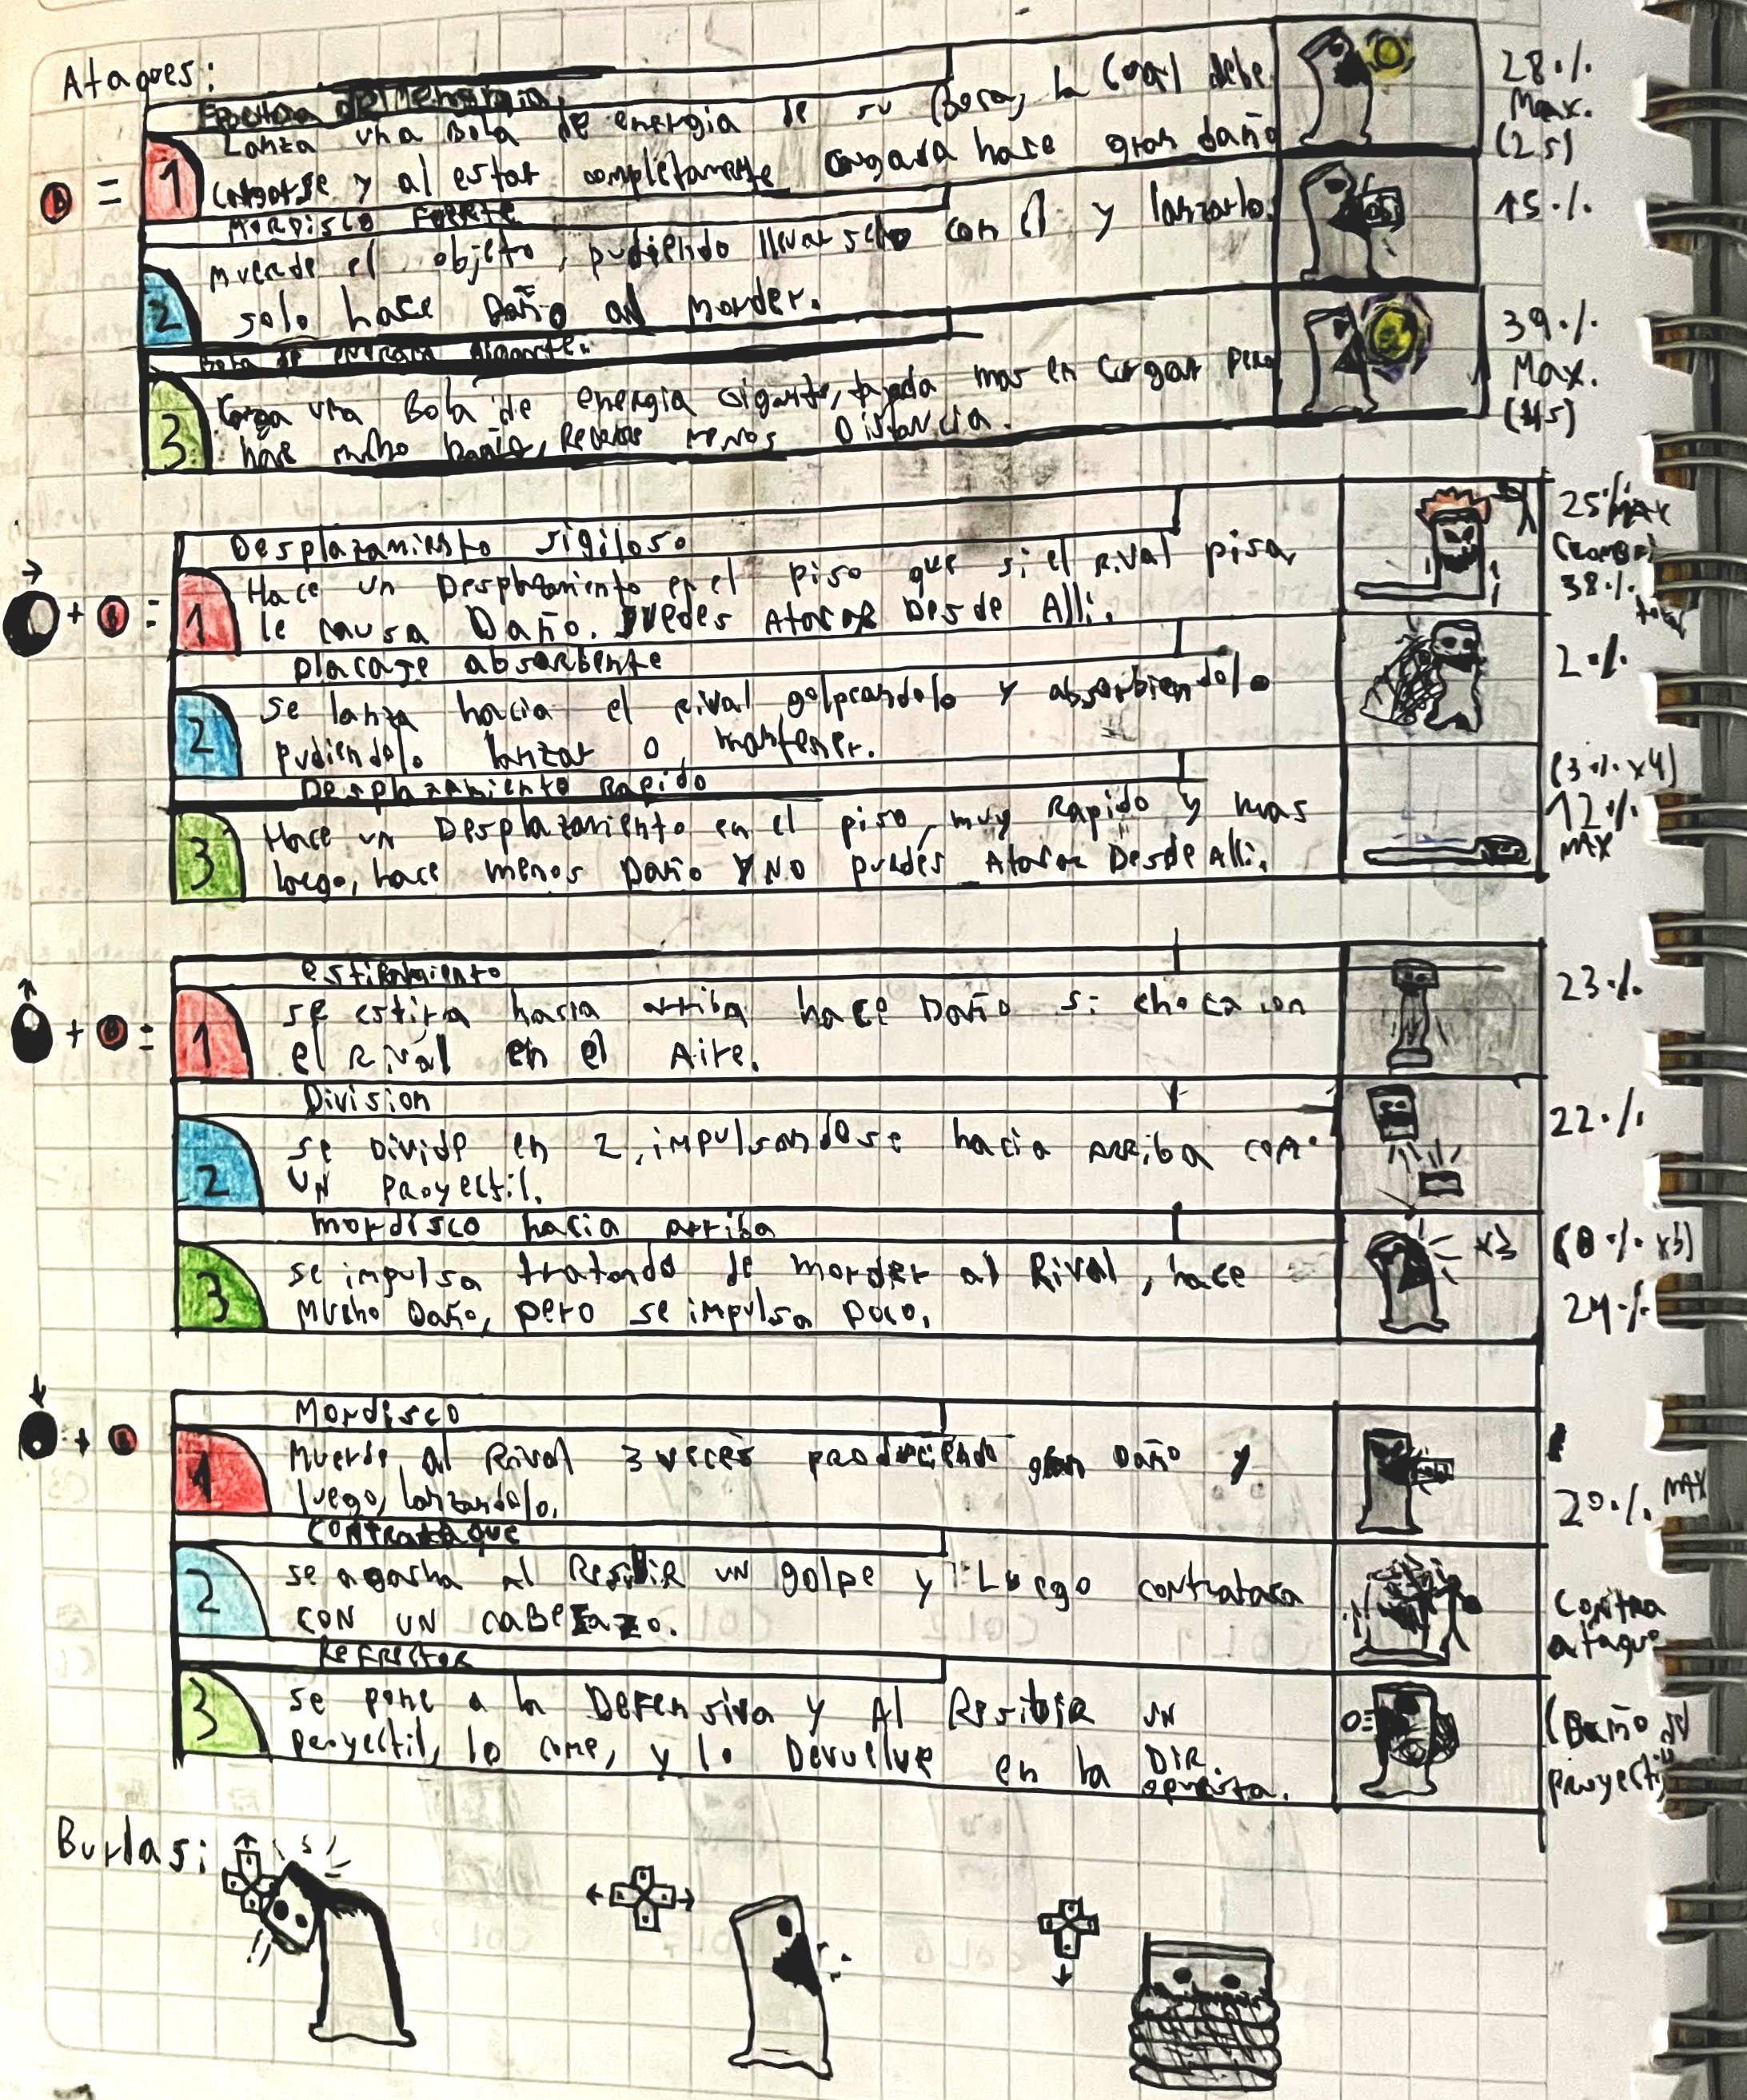 Ataques:
de Energia
Lanza una Bola de energia de su Boca, la Cual debe
cargarse y al estar completamente cargada hace gran daño
28% Max. (2s)
B = 1
MORDISCO FUERTE
Muerde el objeto, pudiendo llevarselo con él y lanzarlo.
solo hace Daño al Morder.
15%
2
Bola de energia gigante.
Carga una Bola de energia gigante, tarda mas en cargar pero
hace mucho Daño, Recorre menos Distancia.
39% Max.
3
Desplazamiento sigiloso
Hace un Desplazamiento en el piso que si el Rival pisa,
le causa Daño. puedes Atacar Desde Alli.
25% MAX
(combo)
38% total
+ B = 1
placaje absorbente
se lanza hacia el rival golpeandolo y absorbiendolo
pudiendolo lanzar o mantener.
2%
2
Desplazamiento Rapido
Hace un Desplazamiento en el piso, muy Rapido y mas
largo, hace menos Daño Y NO puedes Atacar Desde Alli.
(3% x4)
12% MAX
3
estiramiento
se estira hacia arriba hace Daño si choca con
el Rival en el Aire.
23%
+ B = 1
Division
se Divide en 2, impulsandose hacia ARRiba como
UN proyectil.
22%
2
mordisco hacia arriba
se impulsa tratando de morder al Rival, hace
Mucho Daño, pero se impulsa poco.
x3
(8% x3)
24%
3
Mordisco
Muerde al Rival 3 veces produciendo gran Daño y
luego, lanzandolo.
20% MAX
+ B 1
Contrataque
se agacha al Resibir un golpe y Luego contrataca
CON UN CABEZAZO.
Contra
ataque
2
Reflector
se pone a la Defensiva y Al Resibir un
proyectil, lo come, y lo Devuelve en la DIR.
opuesta.
(Daño del
proyectil
3
Burlas: